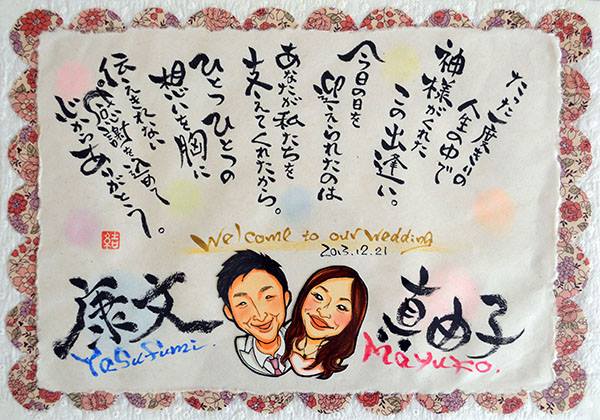 たった一度きりの
人生の中で
神様がくれた
この出逢い。
今日の日を
迎えられたのは
あなたが私たちを
支えてくれたから。
ひとつひとつの
想いを胸に
伝えきれない
感謝を込めて
心からありがとう。
結
Welcome to our wedding
2013.12.21
康文
Yasufumi.
真由子
Mayuko.